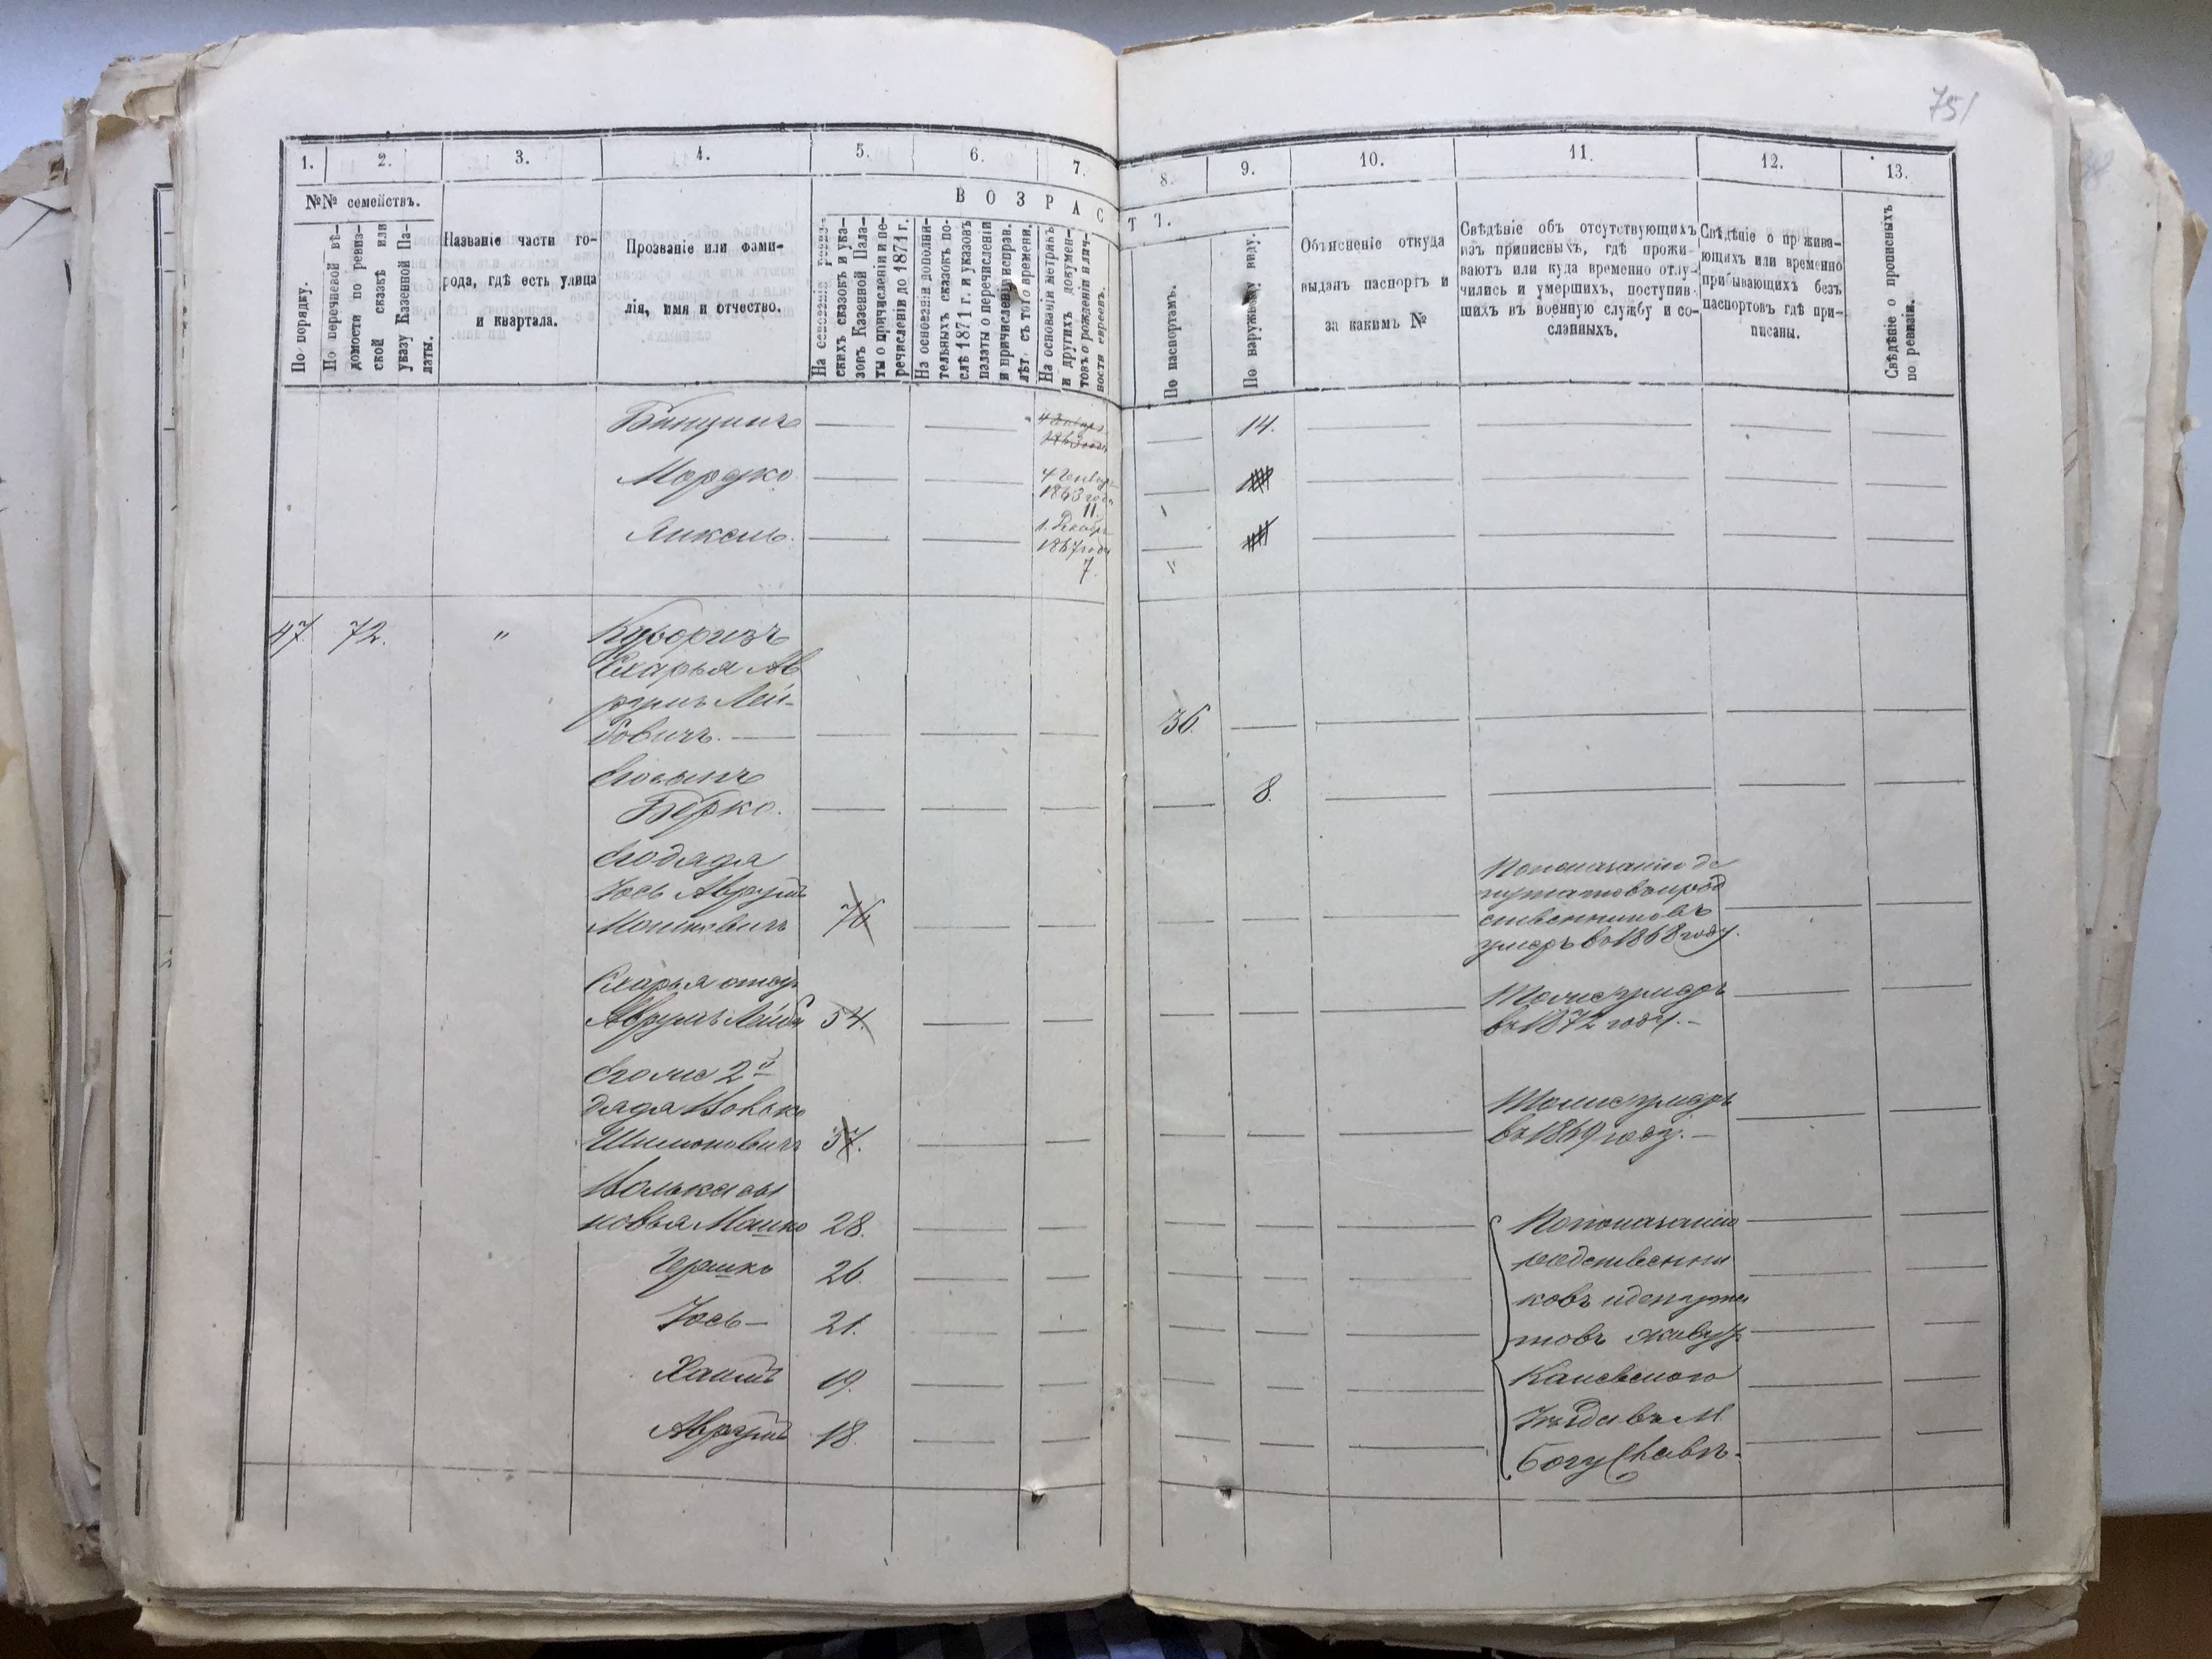 751
1.
2.
3.
4.
5.
6.
7.
8.
9.
10.
11.
12.
13.
№№ семействъ.
ВОЗРАСТЪ.
По порядку.
По перечневой вѣ-
домости по ревиз-
ской сказкѣ или
указу Казенной Па-
латы.
Названіе части го-
рода, гдѣ есть улица
и квартала.
Прозваніе или фами-
лія, имя и отчество.
На основаніи ревиз-
скихъ сказокъ и ука-
зовъ Казенной Пала-
ты о причисленіи и пе-
речисленіи до 1871 г.
На основаніи дополни-
тельныхъ сказокъ по-
слѣ 1871 г. и указовъ
палаты о перечисленіи
и причисленіи исправ.
лѣт. съ того времени.
На основаніи метрикъ
и другихъ докумен-
товъ о рожденіи и лич-
ности евреевъ.
По паспортамъ.
По наружному виду.
Объясненіе откуда
выданъ паспортъ и
за какимъ №
Свѣдѣніе объ отсутствующихъ
изъ приписныхъ, гдѣ прожи-
ваютъ или куда временно отлу-
чились и умершихъ, поступив-
шихъ въ военную службу и со-
сланныхъ.
Свѣдѣніе о прожива-
ющихъ или временно
прибывающихъ безъ
паспортовъ гдѣ при-
писаны.
Свѣдѣніе о прописныхъ
по ревизіи.
14.
Мордко
4 Генвар
1863 года
11
1. Декабр
1867 года
7.
47. 72. "
Схарья Ав
румъ Лей-
бовичъ. 36.
Егосынъ
Берко. 8.
Егодядя
Іось Аврумъ
Мошковичъ 76
Попоказанію де
путатовъ и род
ственниковъ
умеръ въ 1868 году.
Схарья отецъ
Аврумъ Лейба 54.
Тоже умеръ
въ 1872 году.
Егоже 2й
дядя Волько
Шимоновичъ 57.
Тоже умеръ
въ 1869 году.
Волька сы
новья Мошко 28.
Гершко 26
Іось 21.
Хаимъ 19.
Аврумъ 18.
Попоказанію
родственни
ковъ и депута
товъ живут
Каневского
Уѣзда въ М.
Богуславѣ.